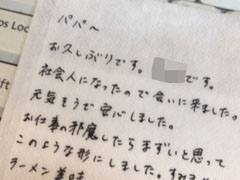 パパへ
お久しぶりです。
です。
社会人になったので会いに来ました。
元気そうで安心しました。
お仕事の邪魔したらまずいと思って
このような形にしました。
ラーメン美味
os Loc
ift